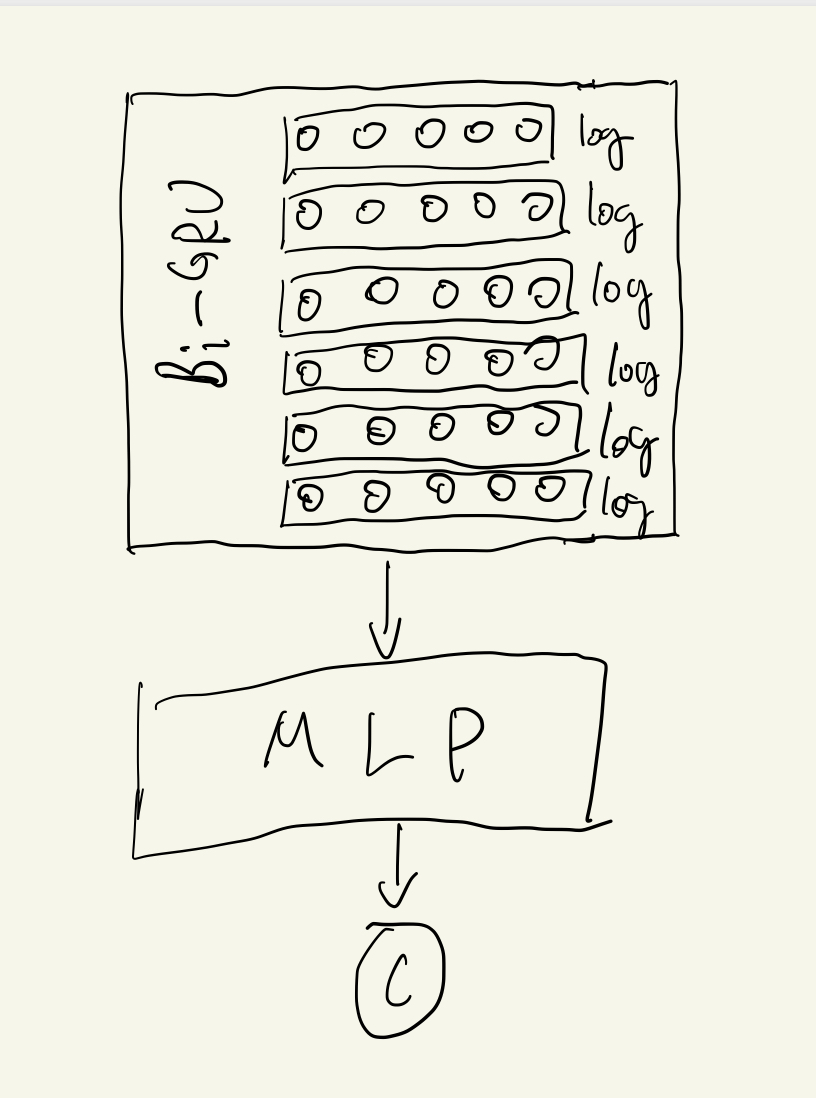 Bi-GRU
log
log
log
log
log
log
MLP
C